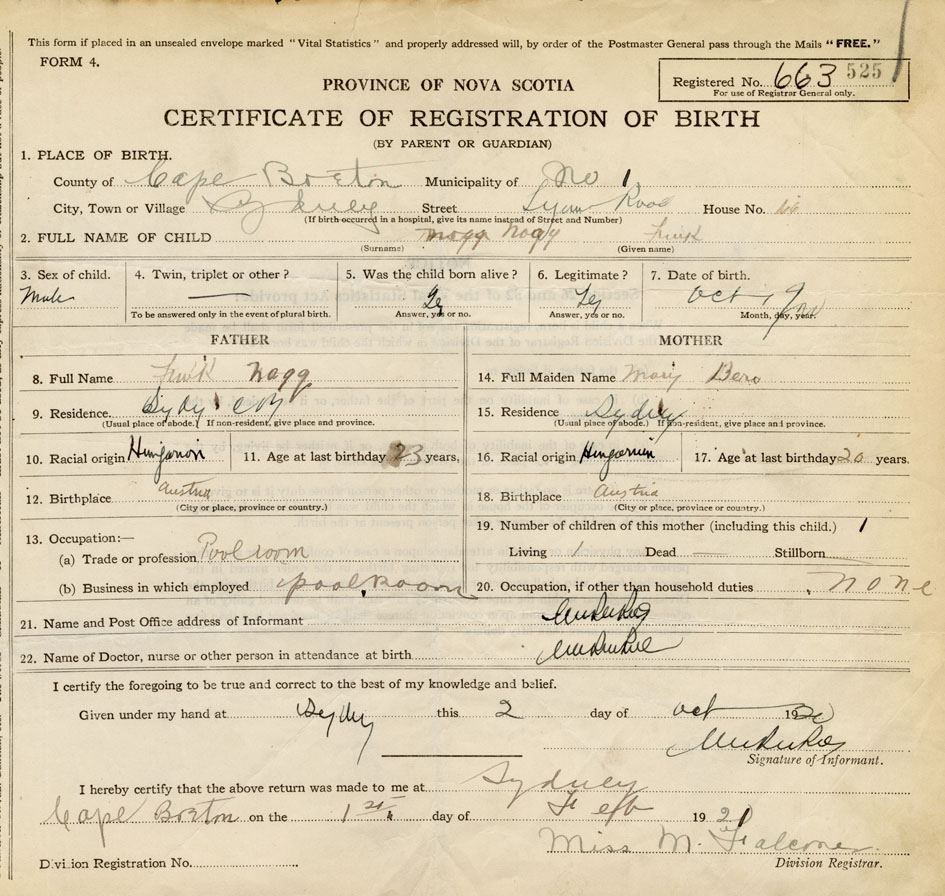 This form if placed in an unsealed envelope marked "Vital Statistics" and properly addressed will, by order of the Postmaster General pass through the Mails "FREE."
FORM 4.
Registered No. 663 525
For use of Registrar General only.
PROVINCE OF NOVA SCOTIA
CERTIFICATE OF REGISTRATION OF BIRTH
(BY PARENT OR GUARDIAN)
1. PLACE OF BIRTH.
County of Cape Breton Municipality of No 1
City, Town or Village Sydney Street Road House No.
(If birth occurred in a hospital, give its name instead of Street and Number)
2. FULL NAME OF CHILD Nagy
(Surname) (Given name)
3. Sex of child. 4. Twin, triplet or other? 5. Was the child born alive? 6. Legitimate? 7. Date of birth.
Male — Yes Yes Oct
To be answered only in the event of plural birth. Answer, yes or no. Answer, yes or no. Month, day, year.
FATHER MOTHER
8. Full Name Nagy 14. Full Maiden Name Mary Bero
9. Residence. Sydney 15. Residence Sydney
(Usual place of abode.) If non-resident, give place and province. (Usual place of abode.) If non-resident, give place and province.
10. Racial origin Hungarian 11. Age at last birthday 23 years, 16. Racial origin Hungarian 17. Age at last birthday 20 years.
12. Birthplace Austria 18. Birthplace Austria
(City or place, province or country.) (City or place, province or country.)
19. Number of children of this mother (including this child.) 1
13. Occupation:—
(a) Trade or profession Pool room Living 1 Dead — Stillborn
(b) Business in which employed pool Room 20. Occupation, if other than household duties none
21. Name and Post Office address of Informant
22. Name of Doctor, nurse or other person in attendance at birth
I certify the foregoing to be true and correct to the best of my knowledge and belief.
Given under my hand at Sydney this 2 day of Oct 1920
Signature of Informant.
I hereby certify that the above return was made to me at Sydney
Cape Breton on the 1st day of Feb 1921
Miss M. Falconer
Division Registration No. Division Registrar.